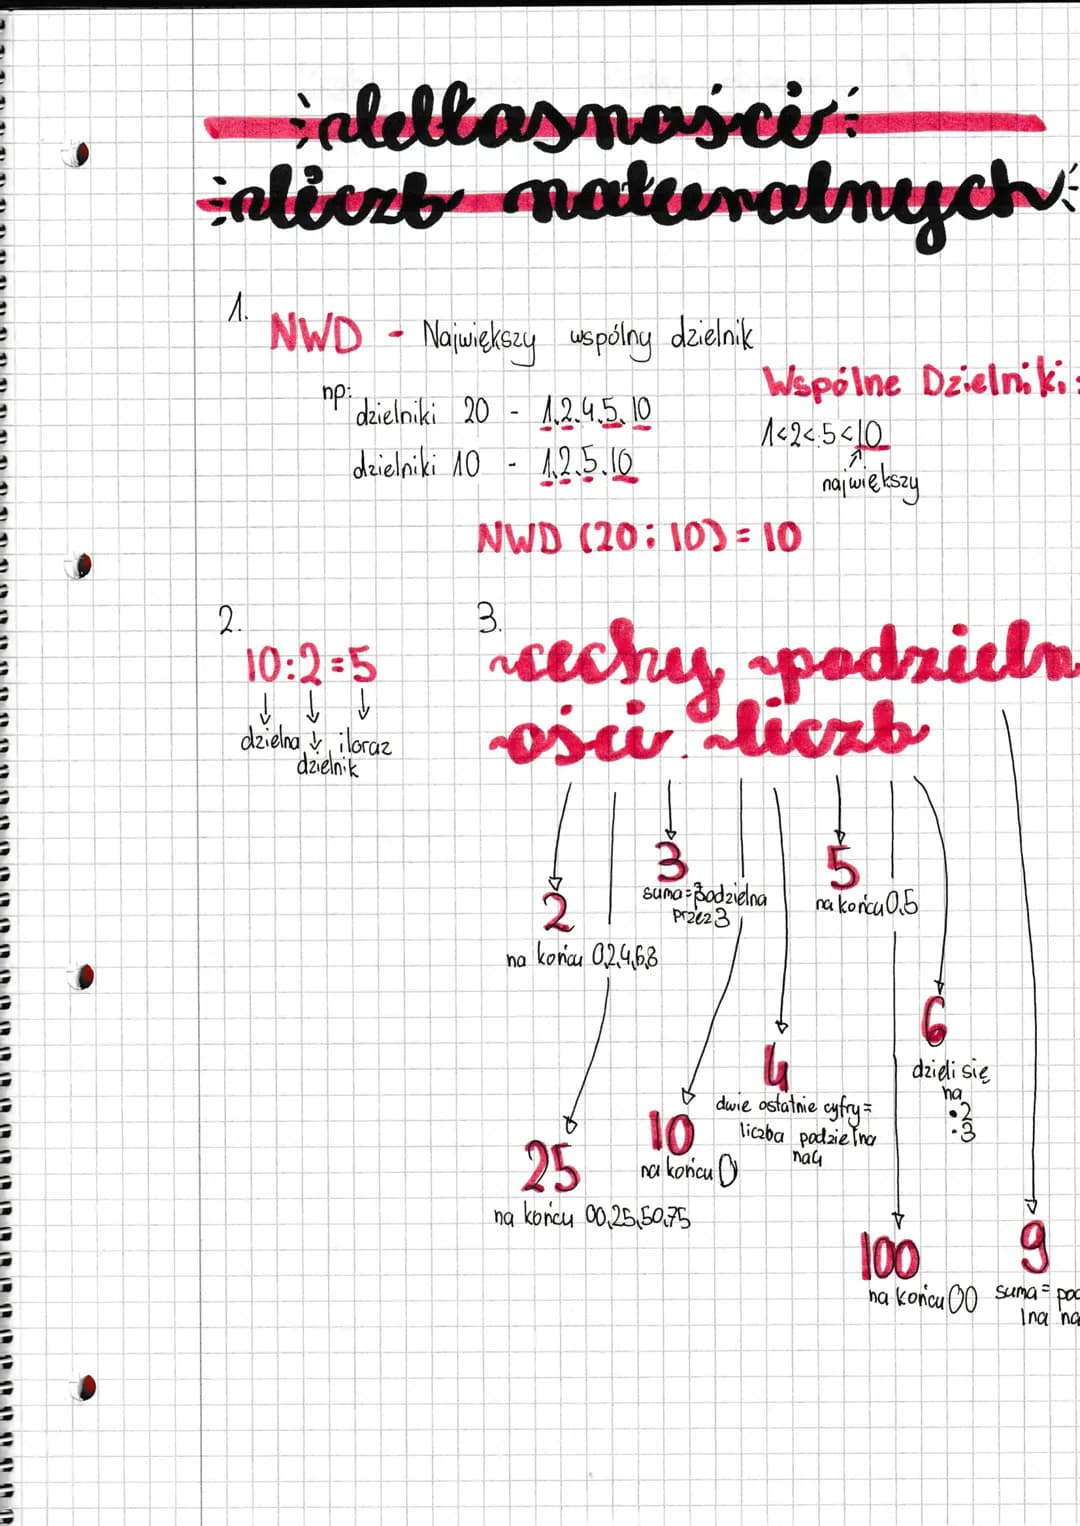 Własności
liczb naturalnych
1.
NWD - Największy wspólny dzielnik
np:
dzielniki 20 - 1,2,4,5,10
dzielniki 10 - 1,2,5,10
Wspólne Dzielniki:
1<2<5<10
największy
NWD (20; 10) = 10
2.
10:2=5
dzielna iloraz
dzielnik
3.
cechy podzieln
ości liczb
2
na końcu 0,2,4,6,8
3
suma = podzielna
przez 3
5
na końcu 0,5
25
na końcu 00,25,50,75
10
na końcu 0
4
dwie ostatnie cyfry =
liczba podzielna
na 4
6
dzieli się
na
•2
•3
100
na końcu 00
9
suma = pod
lna na